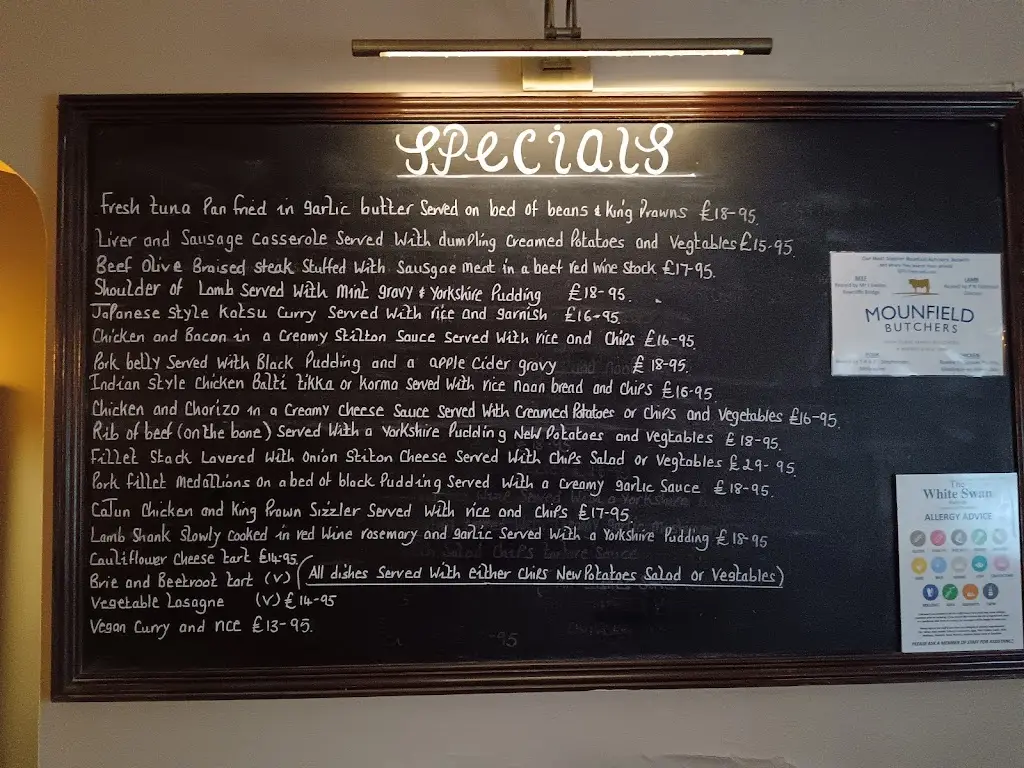 SPecials
Fresh tuna Pan fried in garlic butter Served on bed of beans & King Prawns £18-95
Liver and Sausage Casserole Served With dumpling Creamed Potatoes and Vegtables £15-95
Beef Olive Braised steak Stuffed With Sausgae meat in a beef red wine Stock £17-95.
Shoulder of Lamb Served With Mint gravy & Yorkshire Pudding £18-95.
Japanese Style Katsu Curry Served With rice and garnish £16-95.
Chicken and Bacon in a Creamy Stilton Sauce Served With rice and Chips £16-95.
Pork belly Served With Black Pudding and a apple Cider gravy £18-95.
Indian Style Chicken Balti tikka or korma Served With rice naan bread and Chips £16-95.
Chicken and Chorizo in a Creamy Cheese Sauce Served With Creamed Potatoes or Chips and Vegetables £16-95.
Rib of beef (on the bone) Served With a Yorkshire Pudding New Potatoes and vegtables £18-95.
Fillet Stack Layered With Onion Stiton Cheese Served With Chips Salad or Vegtables £29-95
Pork fillet Medallions on a bed of black Pudding Served With a Creamy garlic Sauce £18-95.
Cajun Chicken and King Prawn Sizzler Served With rice and Chips £17-95.
Lamb Shank Slowly Cooked in red Wine rosemary and garlic Served With a Yorkshire Pudding £18-95
Cauliflower Cheese tart £14-95
Brie and Beetroot tart (V) (All dishes Served With either Chips New Potatoes Salad or Vegtables)
Vegetable Lasagne (V) £14-95
Vegan Curry and rice £13-95.
-95
BEEF
LAMB
MOUNFIELD
BUTCHERS
The
White Swan
ALLERGY ADVICE
PLEASE ASK A MEMBER OF STAFF FOR ASSISTANCE